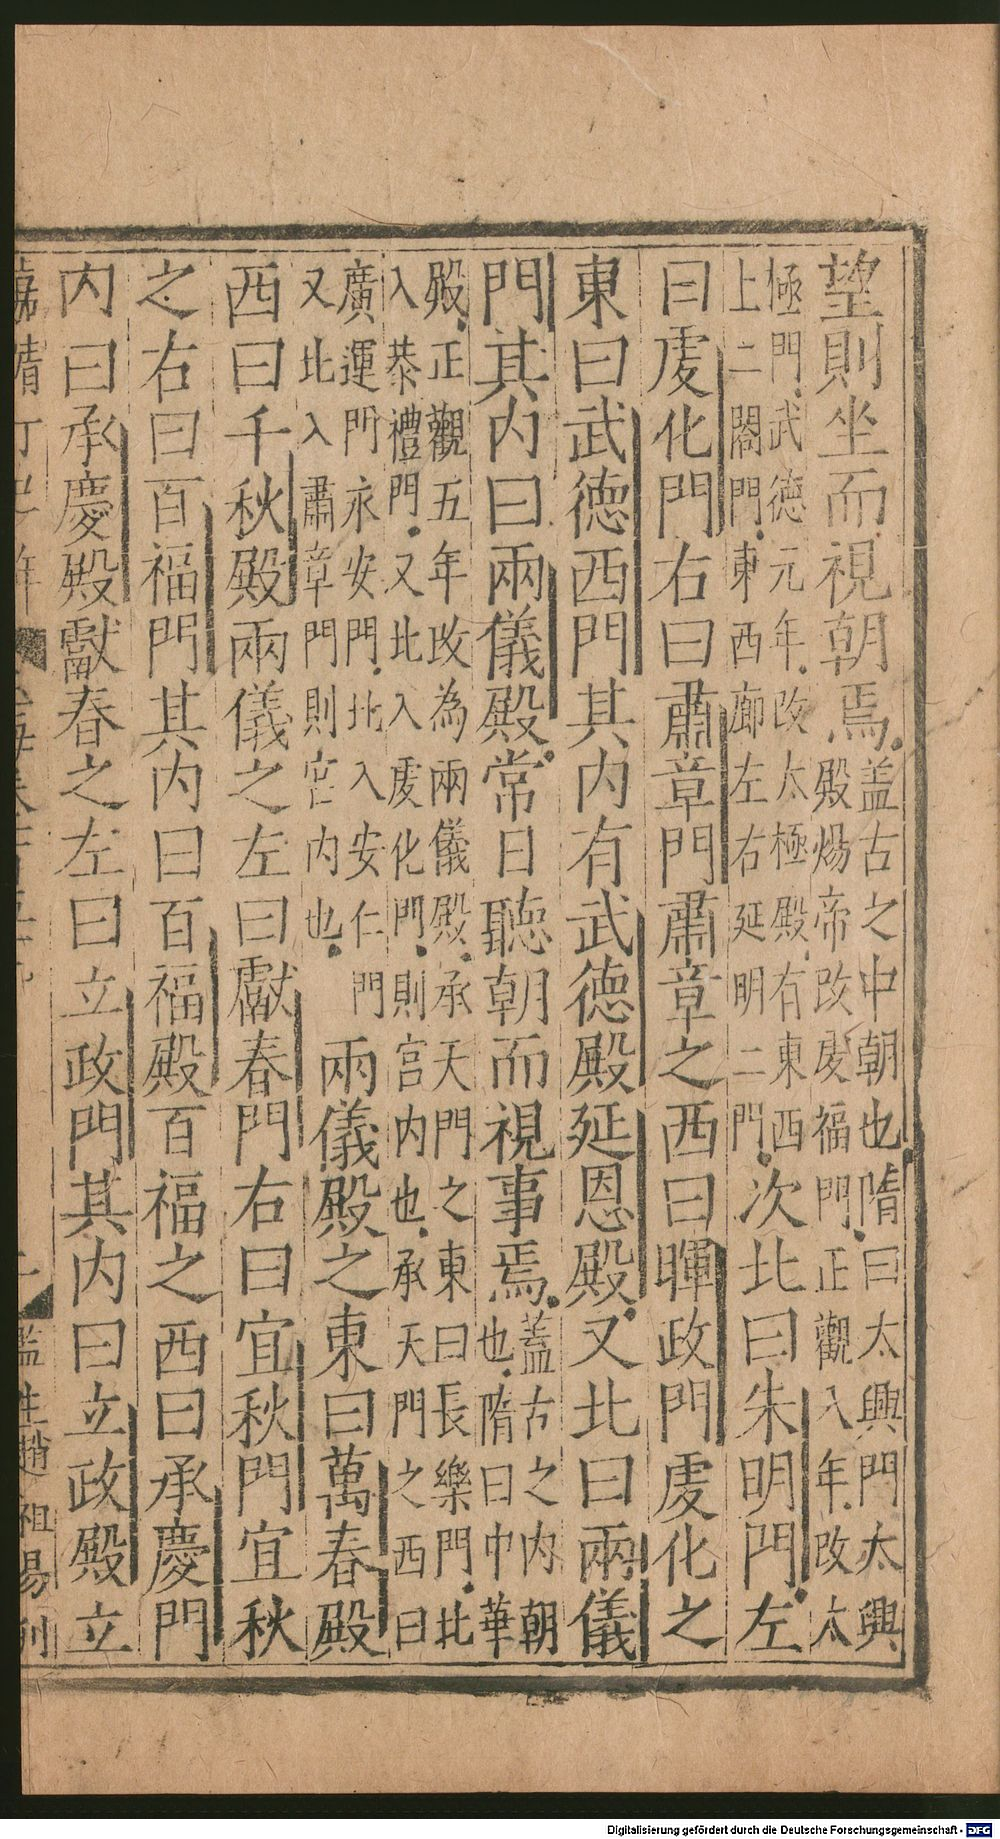 望則坐而視朝焉蓋古之中朝也隋曰太興門太興殿煬帝改䖍福門正觀八年改太
極門武德元年改太極殿有東西上二閤門東西廊左右延明二門次北曰朱明門左
曰䖍化門右曰肅章門肅章之西曰暉政門䖍化之
東曰武德西門其内有武德殿延恩殿又北曰兩儀
門其内曰兩儀殿常日聽朝而視事焉蓋古之内朝也隋曰中華
殿正觀五年改為兩儀殿承天門之東曰長樂門北入恭禮門又北入䖍化門則宫内也承天門之西曰
廣運門永安門北入安仁門又北入肅章門則宫内也兩儀殿之東曰萬春殿
西曰千秋殿兩儀之左曰獻春門右曰宜秋門宜秋
之右曰百福門其内曰百福殿百福之西曰承慶門
内曰承慶殿獻春之左曰立政門其内曰立政殿立
監生趙祖易刋
Digitalisierung gefördert durch die Deutsche Forschungsgemeinschaft - DFG